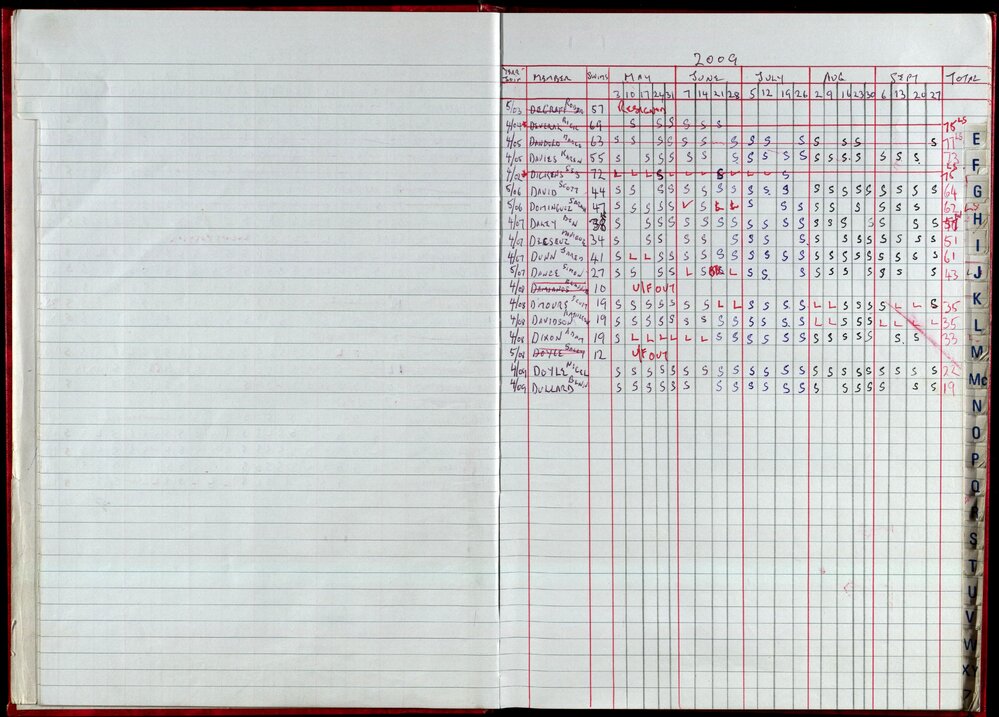 2009
MEMBER SWIMS MAY JUNE JULY AUG SEPT TOTAL
3 10 17 24 31 7 14 21 28 5 12 19 26 2 9 16 23 30 6 13 20 27
5/03 57 RESIGNED
4/04 69 S S S S S S 75 LS
4/05 63 S S S S S S S S S S S S S S 77 LS
4/05 DAVIES KAREN 55 S S S S S S S S S S S S S S S S S S 73
4/02 DICKENS 72 L L L S L L L S L L L S 75
5/06 DAVID SCOTT 44 S S S S S S S S S S S S S S S S S S S S 64
5/06 DOMINGUEZ SARAH 47 S S S S S S L L S S S S S S S S S 62
4/07 DALEY BEN 38 S S S S S S S S S S S S S S S S S
4/07 MONIQUE 34 S S S S S S S S S S S S S S S S S 51
4/07 DUNN JAMES 41 S L L S S S S S S S S S S S S S S S S S S S 61
5/07 DANCE SIMON 27 S S S S L S L S S S S S S S S S 43
4/08 10 U/F OUT
4/08 DMOURE SCOTT 19 S S S S S S S L L S S S S L L S S S S L L S 35
4/08 DAVIDSON 19 S S S S S S S S S S S S S L L S S S L L L L 35
4/08 DIXON ADAM 19 S L L L L L L S S S S S S S S S S S S S 33
5/08 DOYLE 12 U/F OUT
4/09 DOYLE NIGEL S S S S S S S S S S S S S S S S S S S S S S 22
4/09 DULLARD S S S S S S S S S S S S S S S S S S S 19
E
F
G
H
I
J
K
L
M
Mc
N
O
P
Q
R
S
T
U
V
W
XY
Z